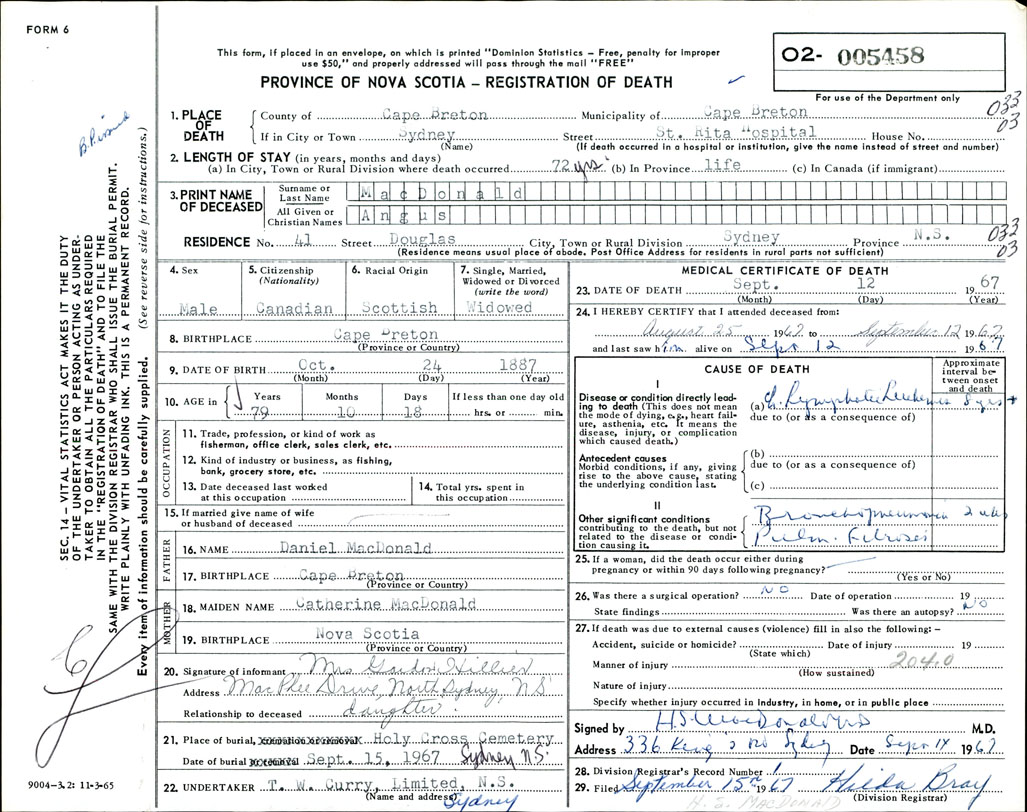 FORM 6
This form, if placed in an envelope, on which is printed "Dominion Statistics – Free, penalty for improper
use $50," and properly addressed will pass through the mail "FREE"
PROVINCE OF NOVA SCOTIA – REGISTRATION OF DEATH
02- 005458
For use of the Department only
1. PLACE OF DEATH
County of Cape Breton Municipality of Cape Breton 033
If in City or Town Sydney Street St. Rita Hospital House No. 03
(Name) (If death occurred in a hospital or institution, give the name instead of street and number)
2. LENGTH OF STAY (in years, months and days)
(a) In City, Town or Rural Division where death occurred 72 yrs (b) In Province life (c) In Canada (if immigrant)
3. PRINT NAME OF DECEASED
Surname or Last Name MacDonald
All Given or Christian Names Angus
RESIDENCE No. 41 Street Douglas City, Town or Rural Division Sydney Province N.S. 033
(Residence means usual place of abode. Post Office Address for residents in rural parts not sufficient) 03
4. Sex
Male
5. Citizenship
(Nationality)
Canadian
6. Racial Origin
Scottish
7. Single, Married,
Widowed or Divorced
(write the word)
Widowed
8. BIRTHPLACE Cape Breton
(Province or Country)
9. DATE OF BIRTH Oct. 24 1887
(Month) (Day) (Year)
10. AGE in Years Months Days If less than one day old
79 10 18 hrs. or min.
OCCUPATION
11. Trade, profession, or kind of work as
fisherman, office clerk, sales clerk, etc.
12. Kind of industry or business, as fishing,
bank, grocery store, etc.
13. Date deceased last worked
at this occupation
14. Total yrs. spent in
this occupation
15. If married give name of wife
or husband of deceased
FATHER
16. NAME Daniel MacDonald
17. BIRTHPLACE Cape Breton
(Province or Country)
MOTHER
18. MAIDEN NAME Catherine MacDonald
19. BIRTHPLACE Nova Scotia
(Province or Country)
20. Signature of informant Mrs Gordon Hillier
Address MacPhee Drive, North Sydney, NS
Relationship to deceased daughter.
21. Place of burial, cremation or removal Holy Cross Cemetery
Date of burial Sept. 15, 1967 Sydney N.S.
22. UNDERTAKER T. W. Curry, Limited, N.S.
(Name and address) Sydney
MEDICAL CERTIFICATE OF DEATH
23. DATE OF DEATH Sept. 12 1967
(Month) (Day) (Year)
24. I HEREBY CERTIFY that I attended deceased from:
August 25 1967 to September 12 1967
and last saw him alive on Sept 12 1967
CAUSE OF DEATH
Approximate
interval be-
tween onset
and death
I
Disease or condition directly lead-
ing to death (This does not mean
the mode of dying, e.g., heart fail-
ure, asthenia, etc. It means the
disease, injury, or complication
which caused death.)
(a) C. Lymphatic Leukemia 5 yrs +
due to (or as a consequence of)
Antecedent causes
Morbid conditions, if any, giving
rise to the above cause, stating
the underlying condition last.
(b)
due to (or as a consequence of)
(c)
II
Other significant conditions
contributing to the death, but not
related to the disease or condi-
tion causing it.
Bronchopneumonia 2 wks
Pulm. Fibrosis
25. If a woman, did the death occur either during
pregnancy or within 90 days following pregnancy?
(Yes or No)
26. Was there a surgical operation? NO Date of operation 19
State findings Was there an autopsy? NO
27. If death was due to external causes (violence) fill in also the following: –
Accident, suicide or homicide? Date of injury 19
(State which)
Manner of injury 204.0
(How sustained)
Nature of injury
Specify whether injury occurred in industry, in home, or in public place
Signed by H.S. MacDonald M.D.
Address 336 King's Rd Sydney Date Sept 14 1967
28. Division Registrar's Record Number
29. Filed September 15th 1967 Hilda Bray
(Division Registrar)
H. S. MACDONALD
SEC. 14 – VITAL STATISTICS ACT MAKES IT THE DUTY
OF THE UNDERTAKER OR PERSON ACTING AS UNDER-
TAKER TO OBTAIN ALL THE PARTICULARS REQUIRED
IN THE "REGISTRATION OF DEATH" AND TO FILE THE
SAME WITH THE DIVISION REGISTRAR WHO SHALL ISSUE THE BURIAL PERMIT.
WRITE PLAINLY WITH UNFADING INK. THIS IS A PERMANENT RECORD.
Every item of information should be carefully supplied. (See reverse side for instructions.)
9004-3.2: 11-3-65